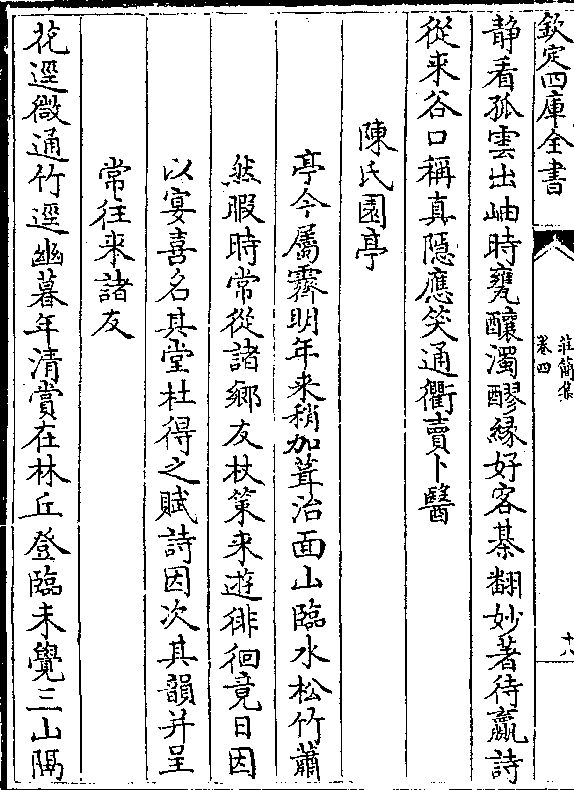 欽定四庫全書
莊簡集
卷四
十八
静看孤雲出岫時甕釀濁醪緣好客棊翻妙著待贏詩
從来谷口稱真隠應笑通衢賣卜醫
陳氏園亭
亭今屬霽明年来稍加葺治面山臨水松竹蕭
然暇時常從諸鄉友杖策来遊徘徊竟日因
以宴喜名其堂杜得之賦詩因次其韻并呈
常往来諸友
花逕微通竹逕幽暮年清賞在林丘登臨未覺三山隔